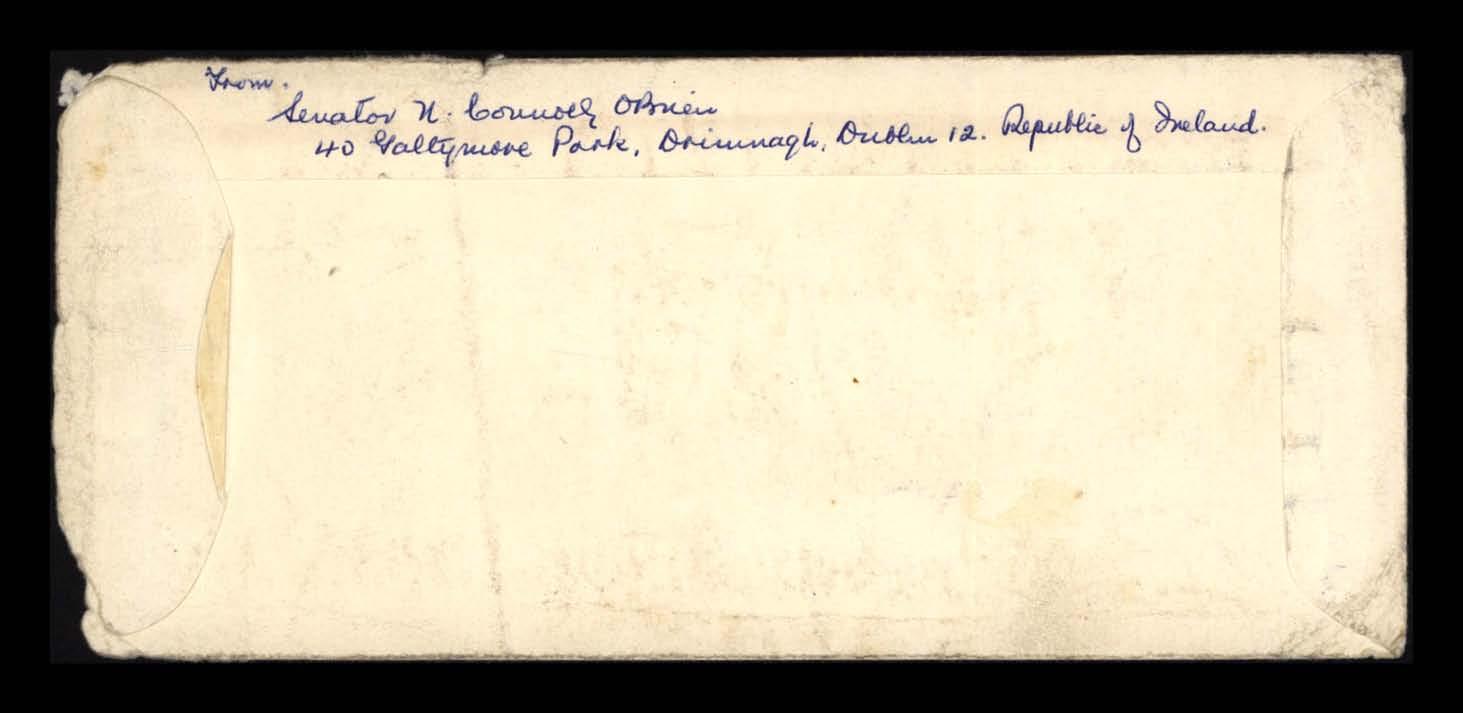 From.
Senator N. Connolly OBrien
40 Galtymore Park, Drimnagh, Dublin 12. Republic of Ireland.